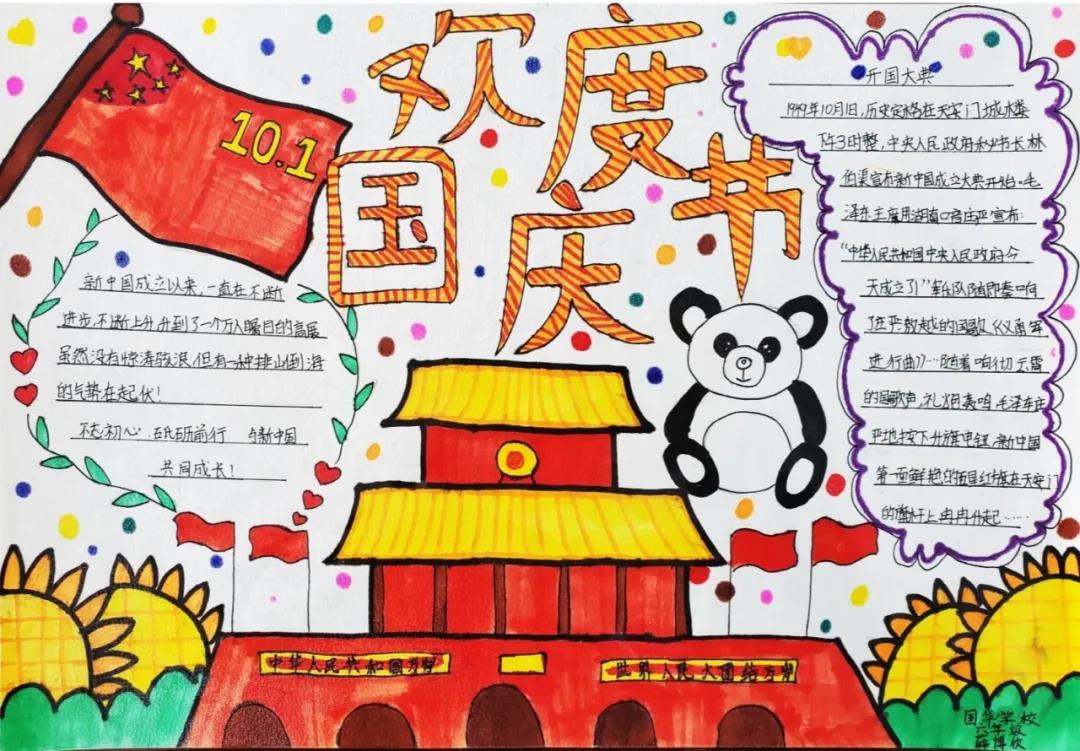 欢度
国庆节
10.1
新中国成立以来,一直在不断
进步,不断上升,升到了一个万人瞩目的高度
虽然没有惊涛骇浪,但有一种排山倒海
的气势在起伏!
不忘初心,砥砺前行 与新中国
共同成长!
开国大典
1949年10月1日,历史定格在天安门城楼
下午3时整,中央人民政府秘书长林
伯渠宣布新中国成立大典开始。毛
泽东主席用湖南口音庄严宣布:
“中华人民共和国中央人民政府今
天成立了!”军乐队随即奏响
了庄严激越的国歌《义勇军
进行曲》……随着响彻云霄
的国歌声,礼炮轰鸣,毛泽东庄
严地按下升旗电钮,新中国
第一面鲜艳的五星红旗在天安门
的旗杆上冉冉升起……
中华人民共和国万岁
世界人民大团结万岁
国华学校
六年级